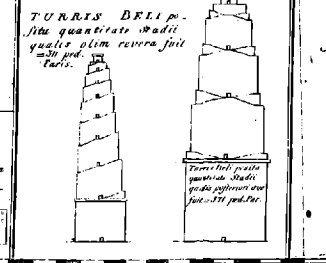 TURRIS BELI po-
sita quantitate Stadii
qualis olim revera fuit
=311 ped.
Paris.
Turris Beli posita
quantitate Stadii
qualis posteriori
fuit = 571 ped. Par.